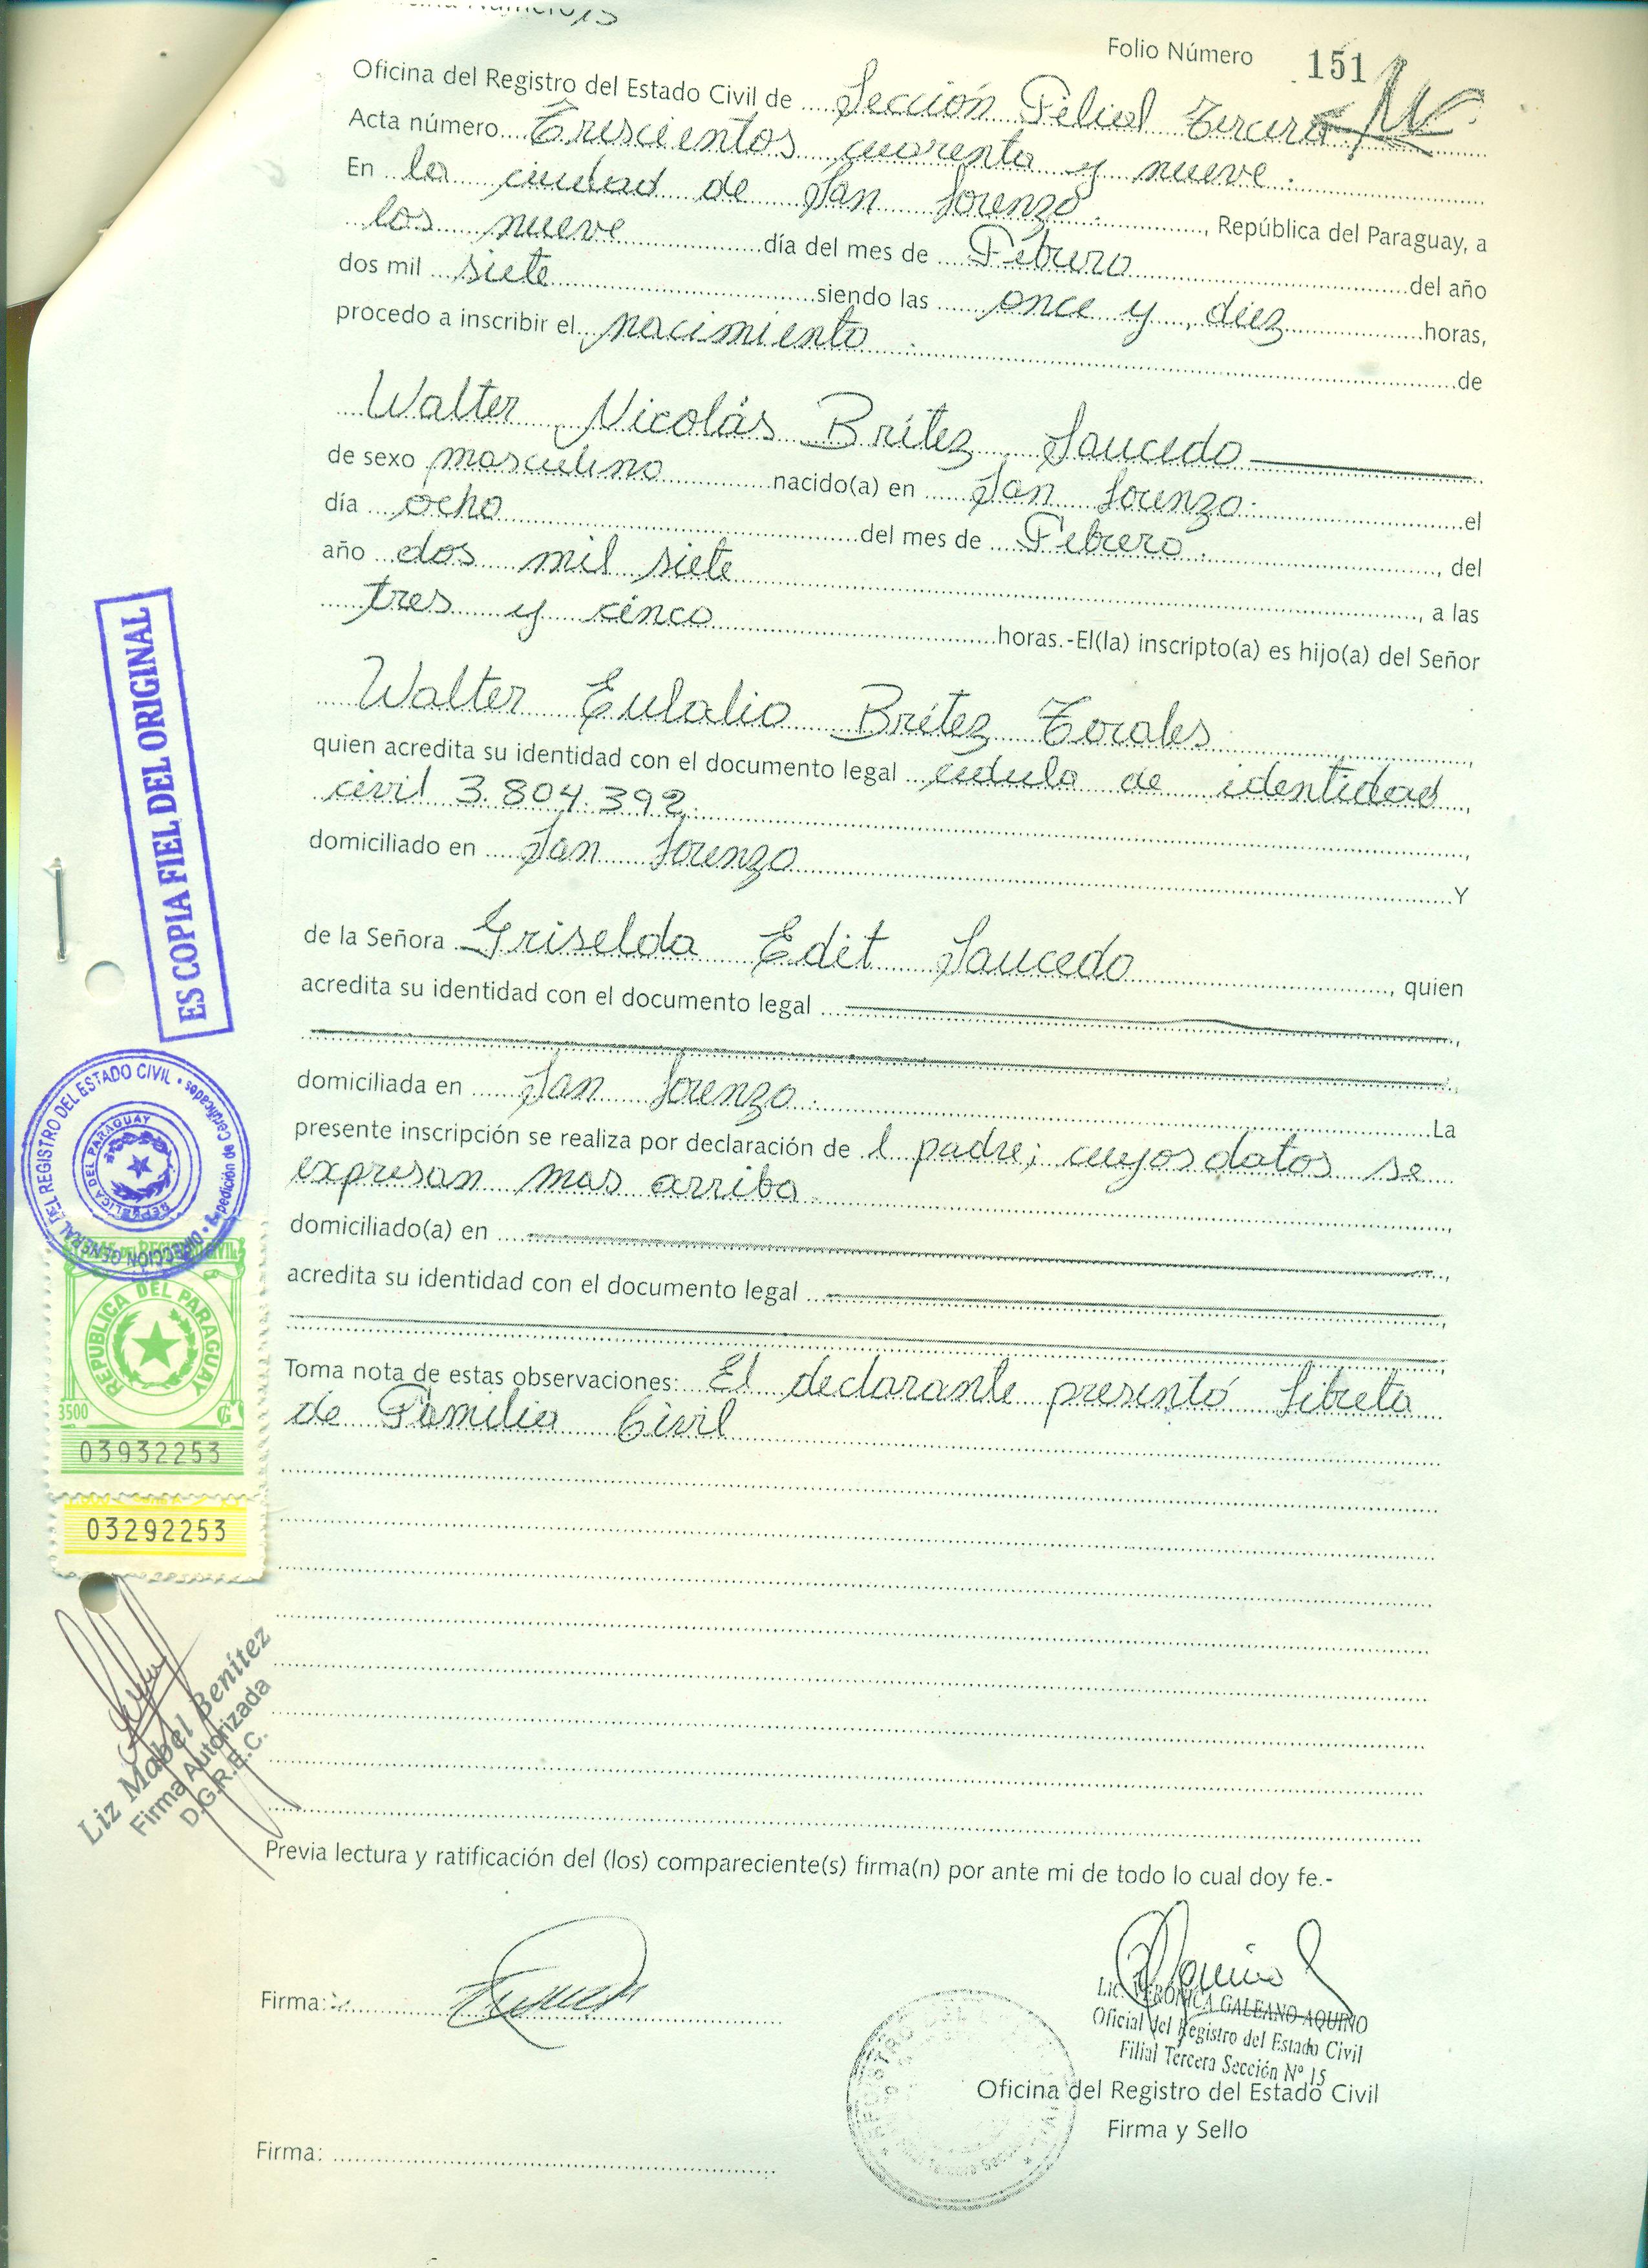 Folio Número 151
Oficina del Registro del Estado Civil de Sección Filial Tercera
Acta número Trescientos cuarenta y nueve.
En la ciudad de San Lorenzo., República del Paraguay, a
los nueve día del mes de Febrero del año
dos mil siete siendo las once y diez horas,
procedo a inscribir el nacimiento de
Walter Nicolás Brítez Saucedo
de sexo masculino nacido(a) en San Lorenzo. el
día ocho del mes de Febrero., del
año dos mil siete, a las
tres y cinco horas.-El(la) inscripto(a) es hijo(a) del Señor
Walter Eulalio Brítez Torales,
quien acredita su identidad con el documento legal cédula de identidad
civil 3.804.392.,
domiciliado en San Lorenzo Y
de la Señora Griselda Edit Saucedo, quien
acredita su identidad con el documento legal
domiciliada en San Lorenzo. La
presente inscripción se realiza por declaración de l padre; cuyos datos se
expresan mas arriba.
domiciliado(a) en
acredita su identidad con el documento legal
Toma nota de estas observaciones: El declarante presentó Libreta
de Familia Civil
Previa lectura y ratificación del (los) compareciente(s) firma(n) por ante mi de todo lo cual doy fe.-
Firma:
LIC. VERÓNICA GALEANO AQUINO
Oficial del Registro del Estado Civil
Filial Tercera Sección Nº 15
Oficina del Registro del Estado Civil
Firma y Sello
Firma:
ES COPIA FIEL DEL ORIGINAL
DIRECCIÓN GENERAL DEL REGISTRO DEL ESTADO CIVIL • Expedición de Certificados •
REPÚBLICA DEL PARAGUAY
REPUBLICA DEL PARAGUAY
3500 ₲
03932253
03292253
Liz Mabel Benítez
Firma Autorizada
D.G.R.E.C.